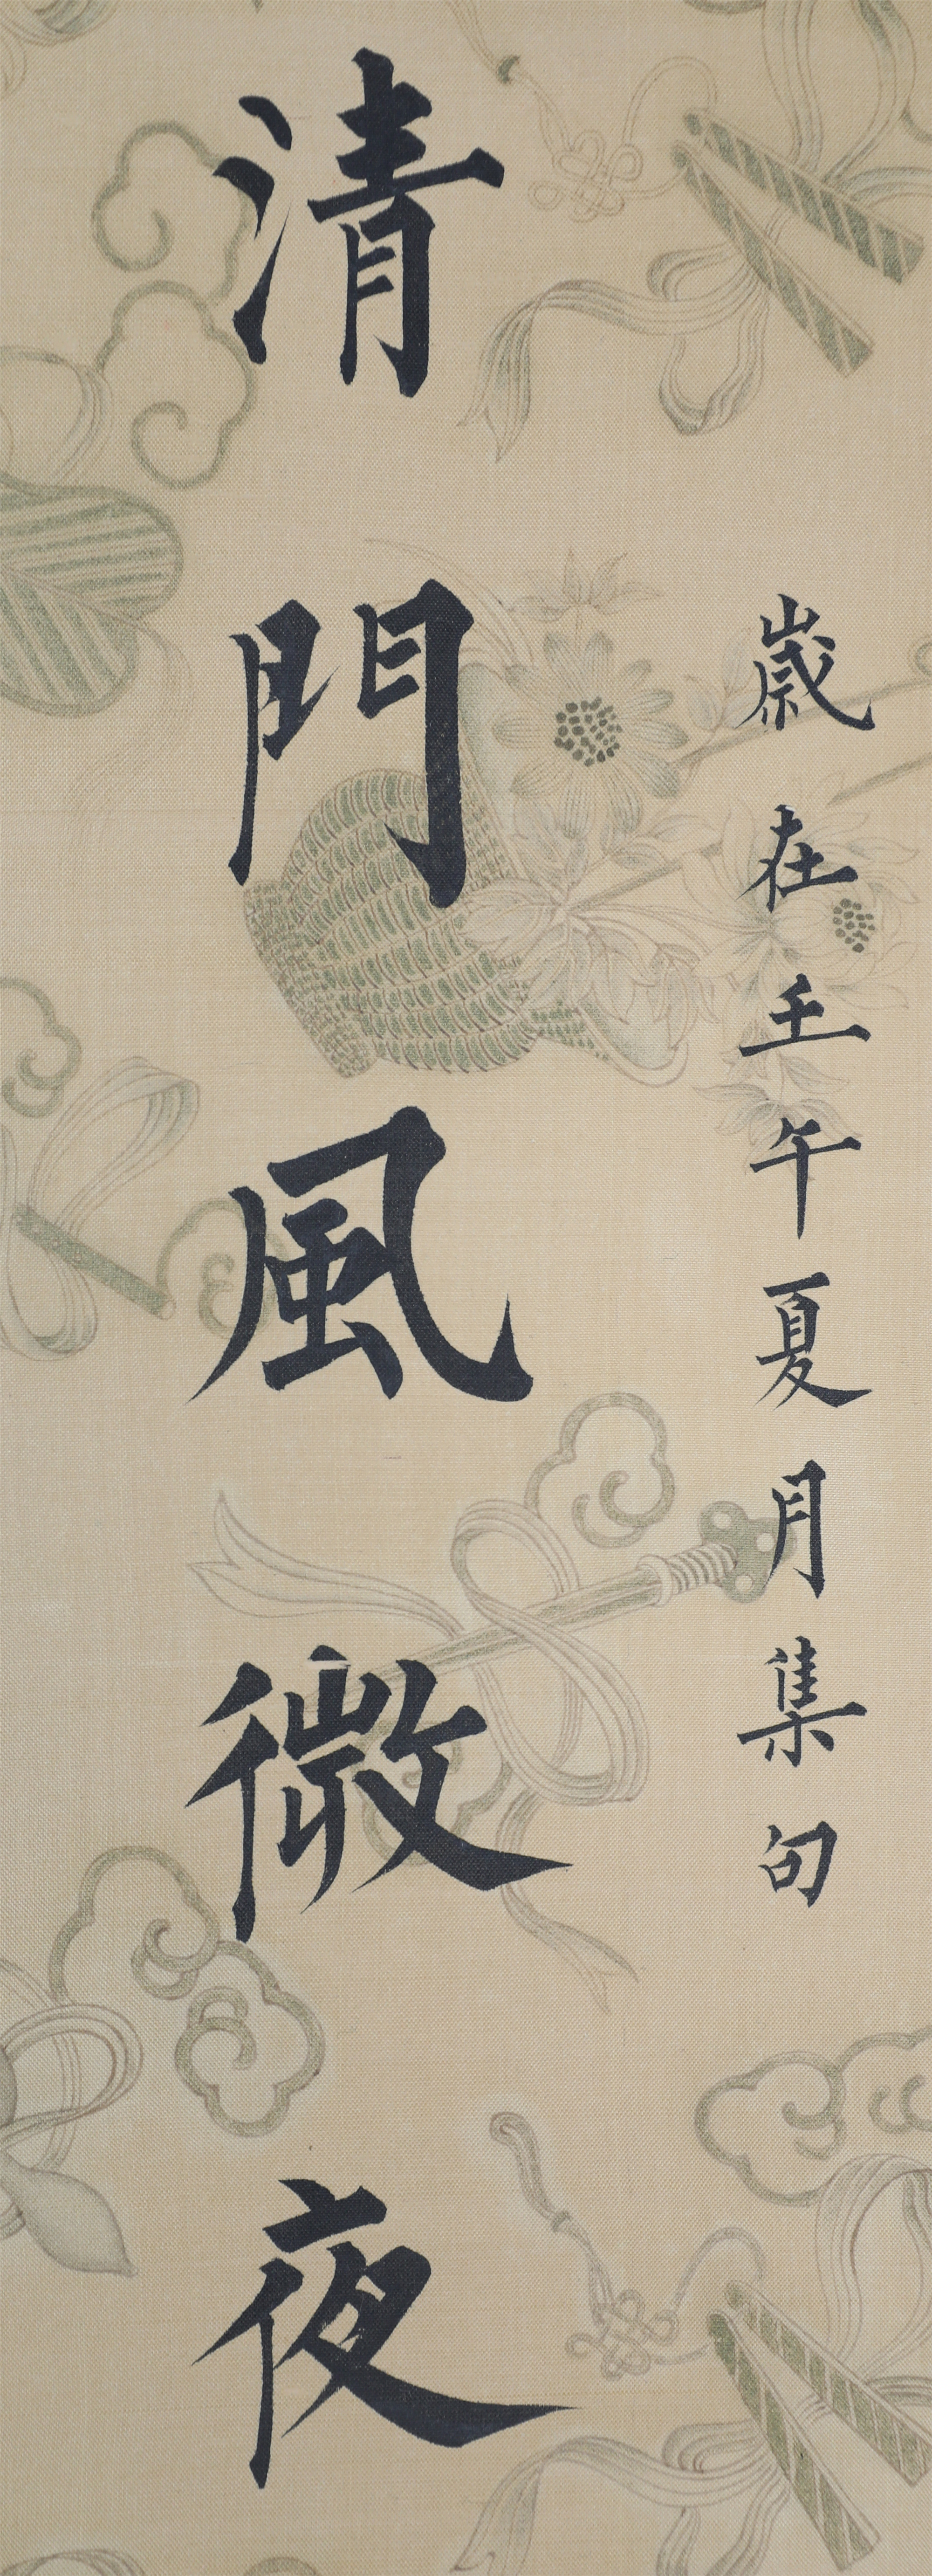 歲在壬午夏月集句
清門風微夜